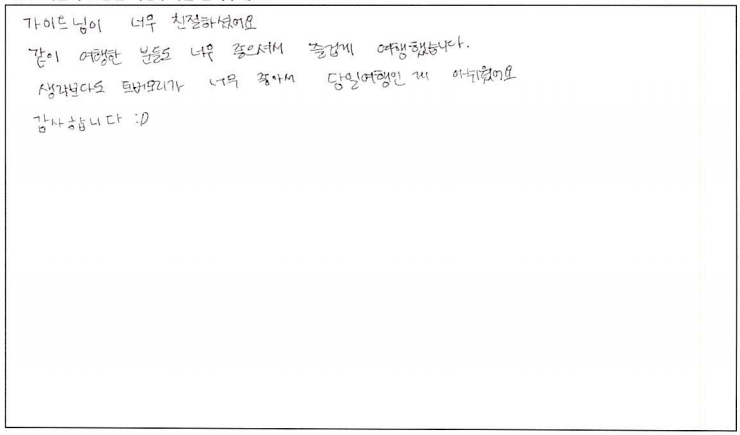 가이드님이 너무 친절하셨어요
같이 여행한 분들도 너무 좋으셔서 즐겁게 여행했습니다.
생각보다도 토버모리가 너무 좋아서 당일여행인 게 아쉬웠어요
감사합니다 :D